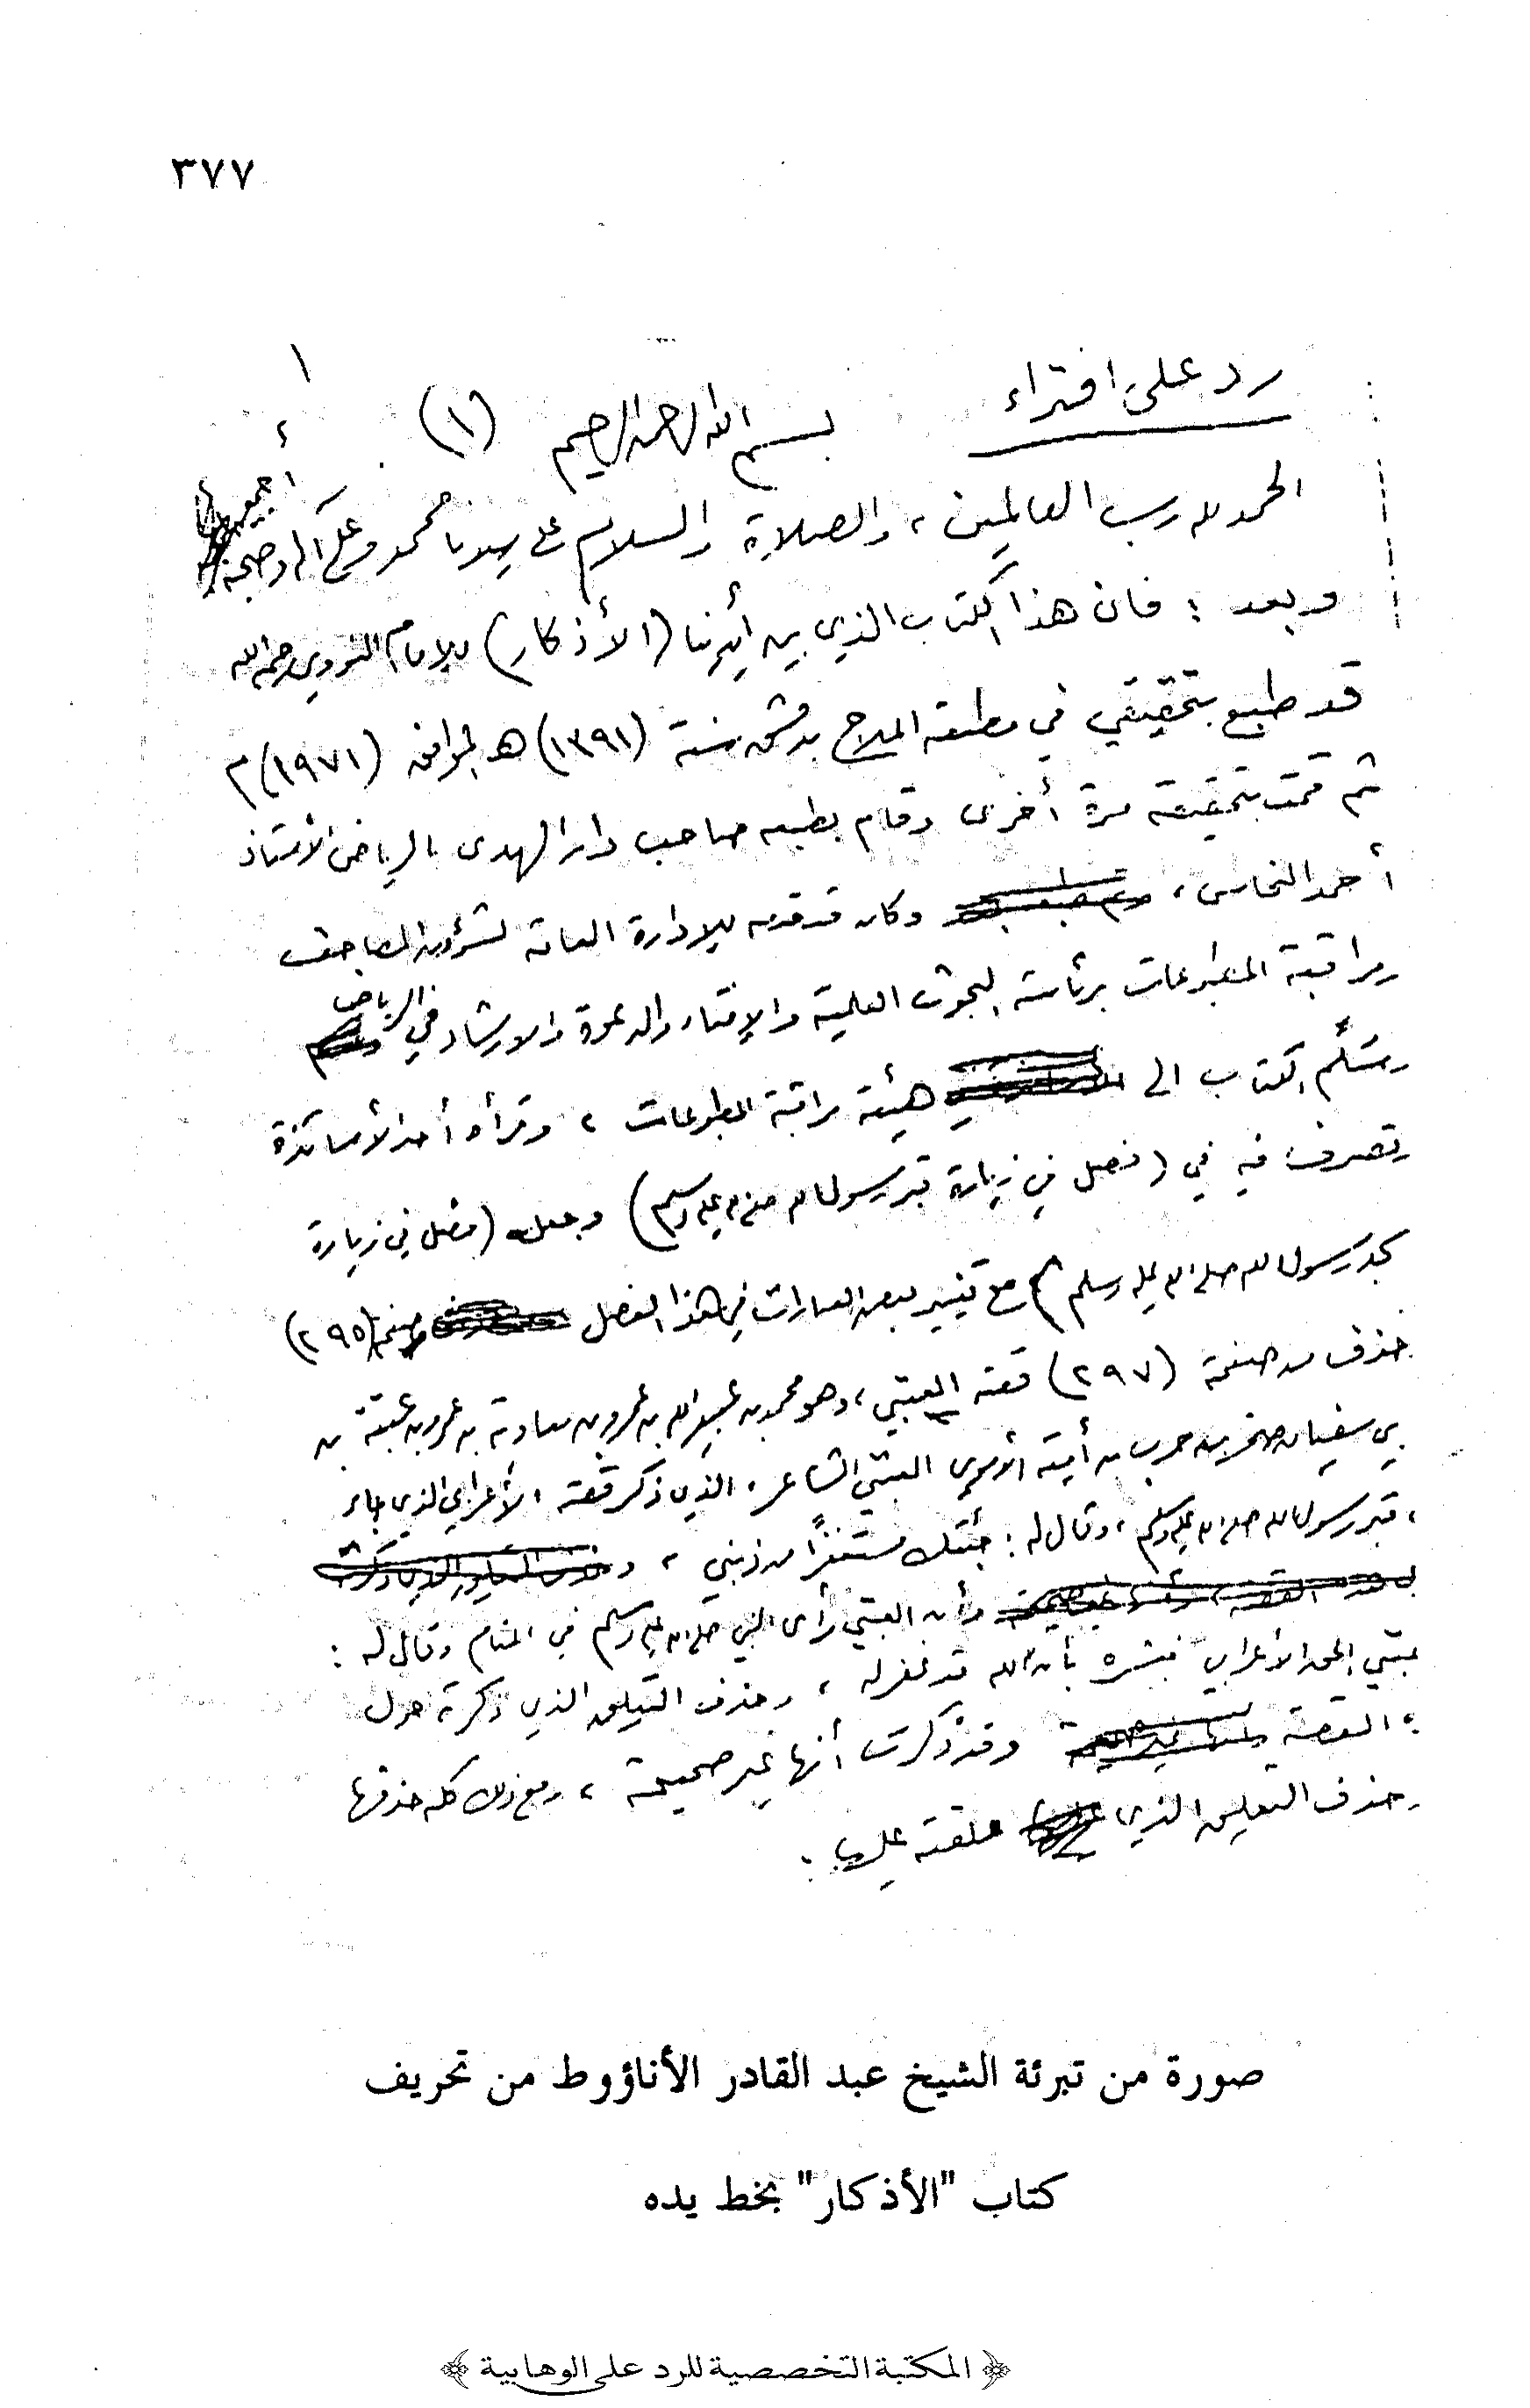 ٣٧٧
١
رد على افتراء
بسم الله الرحمن الرحيم (١)
الحمد لله رب العالمين ، والصلاة والسلام على سيدنا محمد وعلى آله وصحبه أجمعين
وبعد : فان هذا الكتاب الذي بين أيدينا (الأذكار) للإمام النووي رحمه الله
قد طبع بتحقيقي في مطبعة الملاح بدمشق سنة (١٣٩١) هـ الموافق (١٩٧١) م
ثم قمت بتحقيقه مرة أخرى وقام بطبعه صاحب دار الهدى بالرياض الأستاذ
أحمد النحاس ، وكان قد قدمه للإدارة العامة لشؤون المصاحف
ومراقبة المطبوعات برئاسة البحوث العلمية والإفتاء والدعوة والارشاد في الرياض
وسُلِّم الكتاب الى هيئة مراقبة المطبوعات ، وقرأه أحد الأساتذة
وتصرف فيه في (فصل في زيارة قبر رسول الله صلى الله عليه وسلم) وجعله (فصل في زيارة
مسجد رسول الله صلى الله عليه وسلم) مع تغيير بعض العبارات في هذا الفصل صفحة (٢٩٥)
وحذف من صفحة (٢٩٧) قصة العتبي ، وهو محمد بن عبيد الله بن عمرو بن معاوية بن عمرو بن عتبة بن
أبي سفيان صخر بن حرب بن أمية الأموي العتبي الشاعر ، الذي ذكر قصة الأعرابي الذي جاء
قبر رسول الله صلى الله عليه وسلم ، وقال له : جئتك مستغفرًا من ذنبي ،
وأن العتبي رأى النبي صلى الله عليه وسلم في المنام وقال له :
يا عتبي الحق الأعرابي فبشره بأن الله قد غفر له ، وحذف التعليق الذي ذكرته حول
هذه القصة وقد ذكرت أنها غير صحيحة ، ومع ذلك كله حذفها
وحذف التعليق الذي علقته عليها .
صورة من تبرئة الشيخ عبد القادر الأناؤوط من تحريف
كتاب "الأذكار" بخط يده
﴿ المكتبة التخصصية للرد على الوهابية ﴾